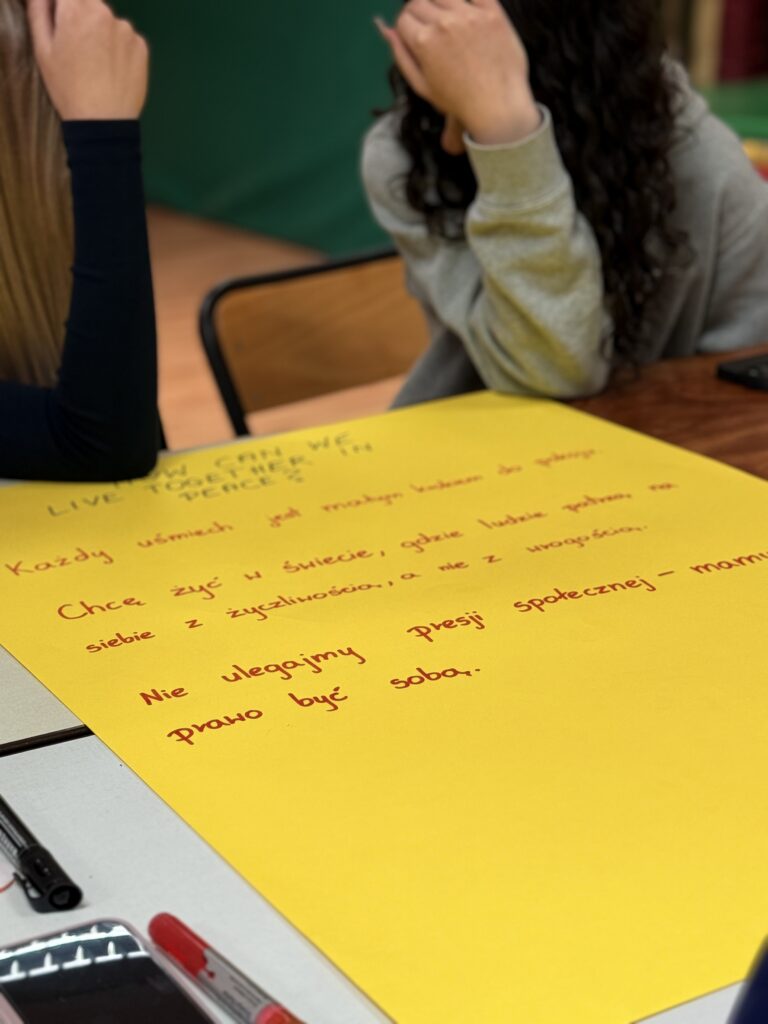 HOW CAN WE
LIVE TOGETHER IN
PEACE?
Każdy uśmiech jest małym krokiem do pokoju.
Chcę żyć w świecie, gdzie ludzie patrzą na
siebie z życzliwością, a nie z wrogością.
Nie ulegajmy presji społecznej - mamy
prawo być sobą.